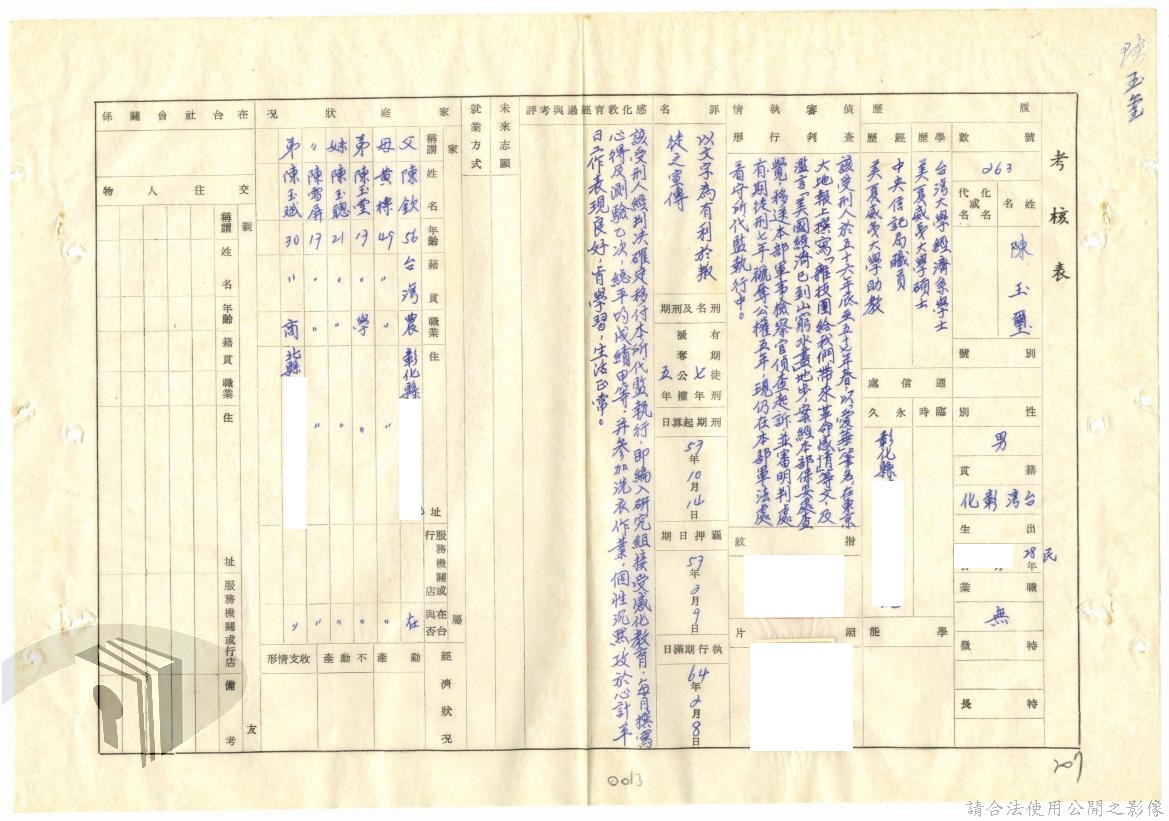 考核表
履歷
號數
263
化名或代名
姓名
陳玉璽
別號
性別
男
籍貫
台灣彰化
出生
民28年
職業
無
特徵
特長
學歷
台灣大學經濟系學士
美夏威夷大學碩士
經歷
中央信託局職員
美夏威夷大學助教
通信處
臨時
永久
彰化縣
學能
偵查審判執行情形
該受刑人於五十六年底至五十七年春,以愛華筆名在東京
大地報上撰寫「雜技團給我們帶來革命感情」等文及
濫言「美國經濟已到山窮水盡」地步,案經本部保安處查
覺,移送本部軍事檢察官偵查起訴,並審明判處
有期徒刑七年褫奪公權五年,現仍在本部軍法處
看守所代監執行中。
指紋
照片
罪名
以文字為有利於叛
徒之宣傳
刑名及刑期
有期徒刑七年
褫奪公權五年
刑期起算日
57年10月14日
羈押日期
57年2月9日
執行期滿日
64年2月8日
感化教育經過與考評
該受刑人經判決確定移付本所代監執行,即編入研究組接受感化教育,每月撰寫
心得及測驗乙次,總平均成績甲等,并參加洗衣作業,個性沉默,攻於心計,平
日工作表現良好,肯學習,生活正常。
未來志願
就業方式
家庭狀況
家屬
稱謂 姓名 年齡 籍貫 職業 住址 服務機關或行店 在台與否
父 陳欽 56 台灣 農 彰化縣 在
母 黃樽 49 〃 〃 〃
弟 陳玉堂 17 〃 學 〃 〃
妹 陳玉聰 21 〃 〃 〃 〃
〃 陳雪屏 17 〃 〃 〃 〃
弟 陳玉斌 30 〃 商 北縣 〃
經濟狀況
動產
不動產
收支情形
在台社會關係
交往人物
親友
稱謂 姓名 年齡 籍貫 職業 住址 服務機關或行店 備考
陳玉璽
207
0013
請合法使用公開之影像